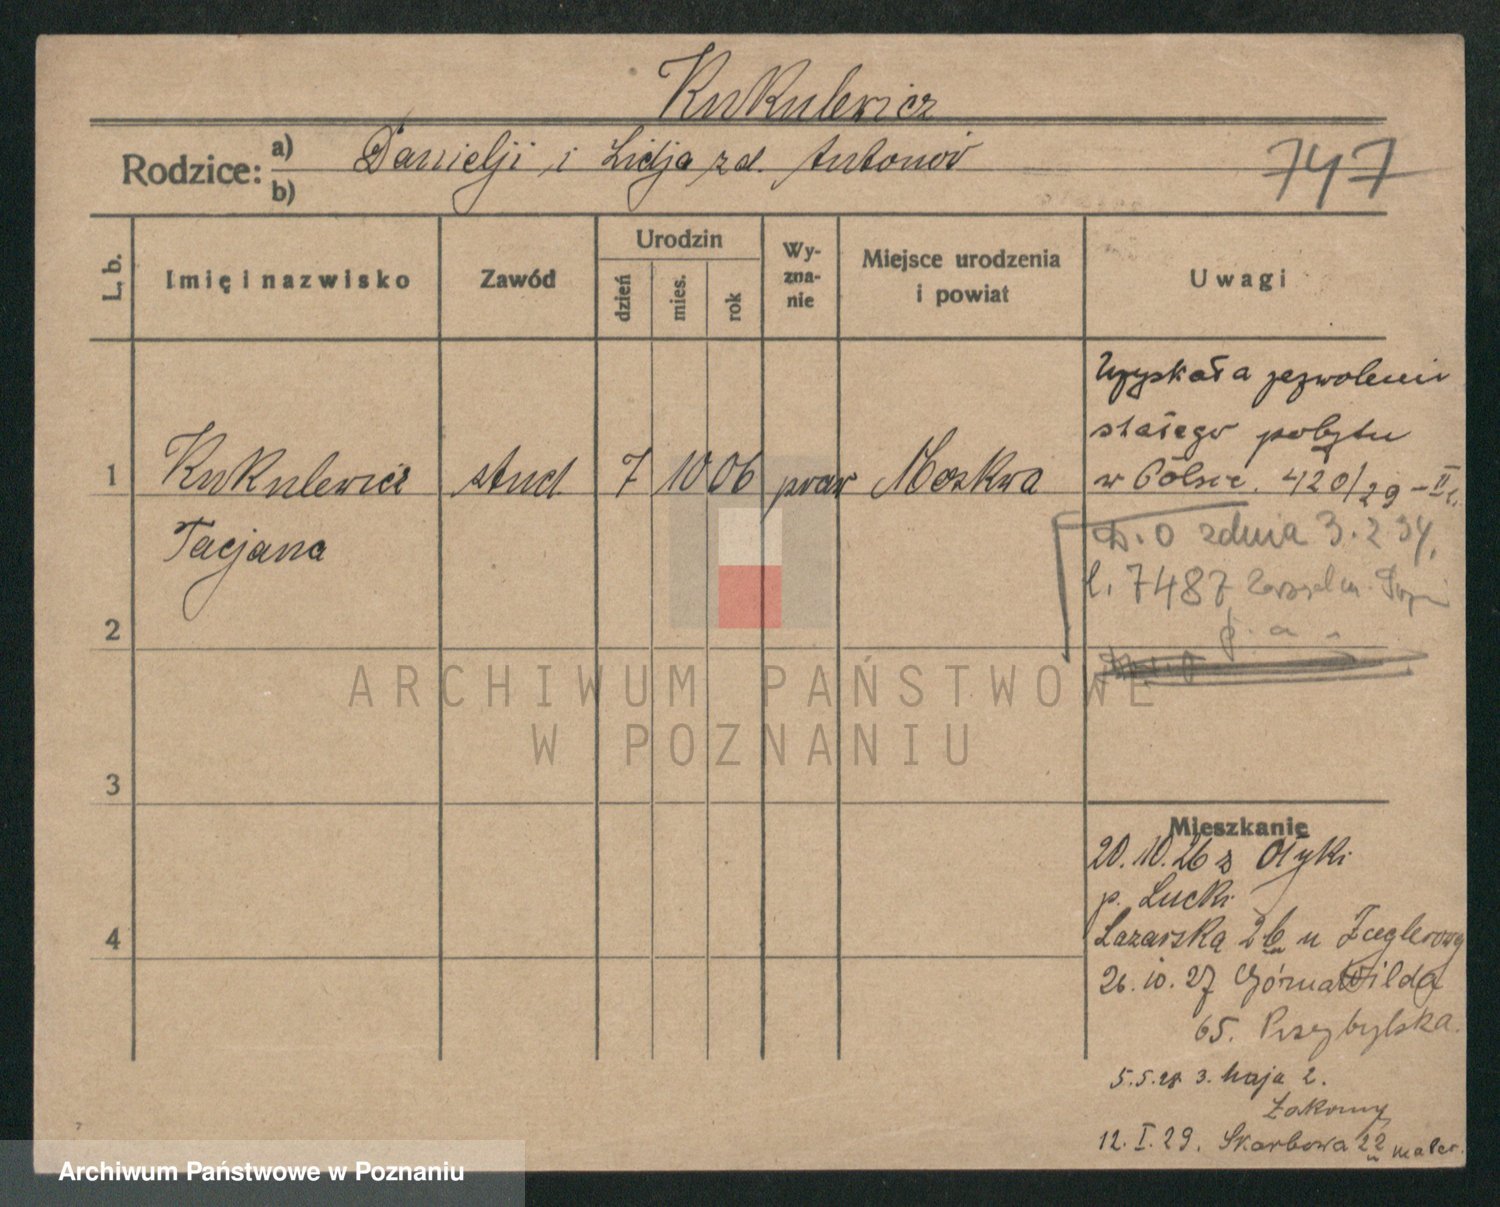 Kukulewicz
Rodzice: a) Danielji i Lidja zd. Antonów
b)
747
L. b.
Imię i nazwisko
Zawód
Urodzin
dzień
mies.
rok
Wy-
zna-
nie
Miejsce urodzenia
i powiat
Uwagi
1 Kukulewicz stud. 7 10 06 praw Moskwa
Tacjana
Uzyskała zezwolenie
stałego pobytu
w Polsce. 420/29 - II
D. O zdnia 3.2 34,
l. 7487
p. a.
2
3
4
Mieszkanie
20.10.26 z Ołyki
p. Łucki
Łazarska 2b u Zieglerowej
26.10.27 Górna Wilda
65. Przybylska.
5.5.28 3. Maja 2.
12.I.29. Skarbowa 22
ARCHIWUM PAŃSTWOWE
W POZNANIU
Archiwum Państwowe w Poznaniu